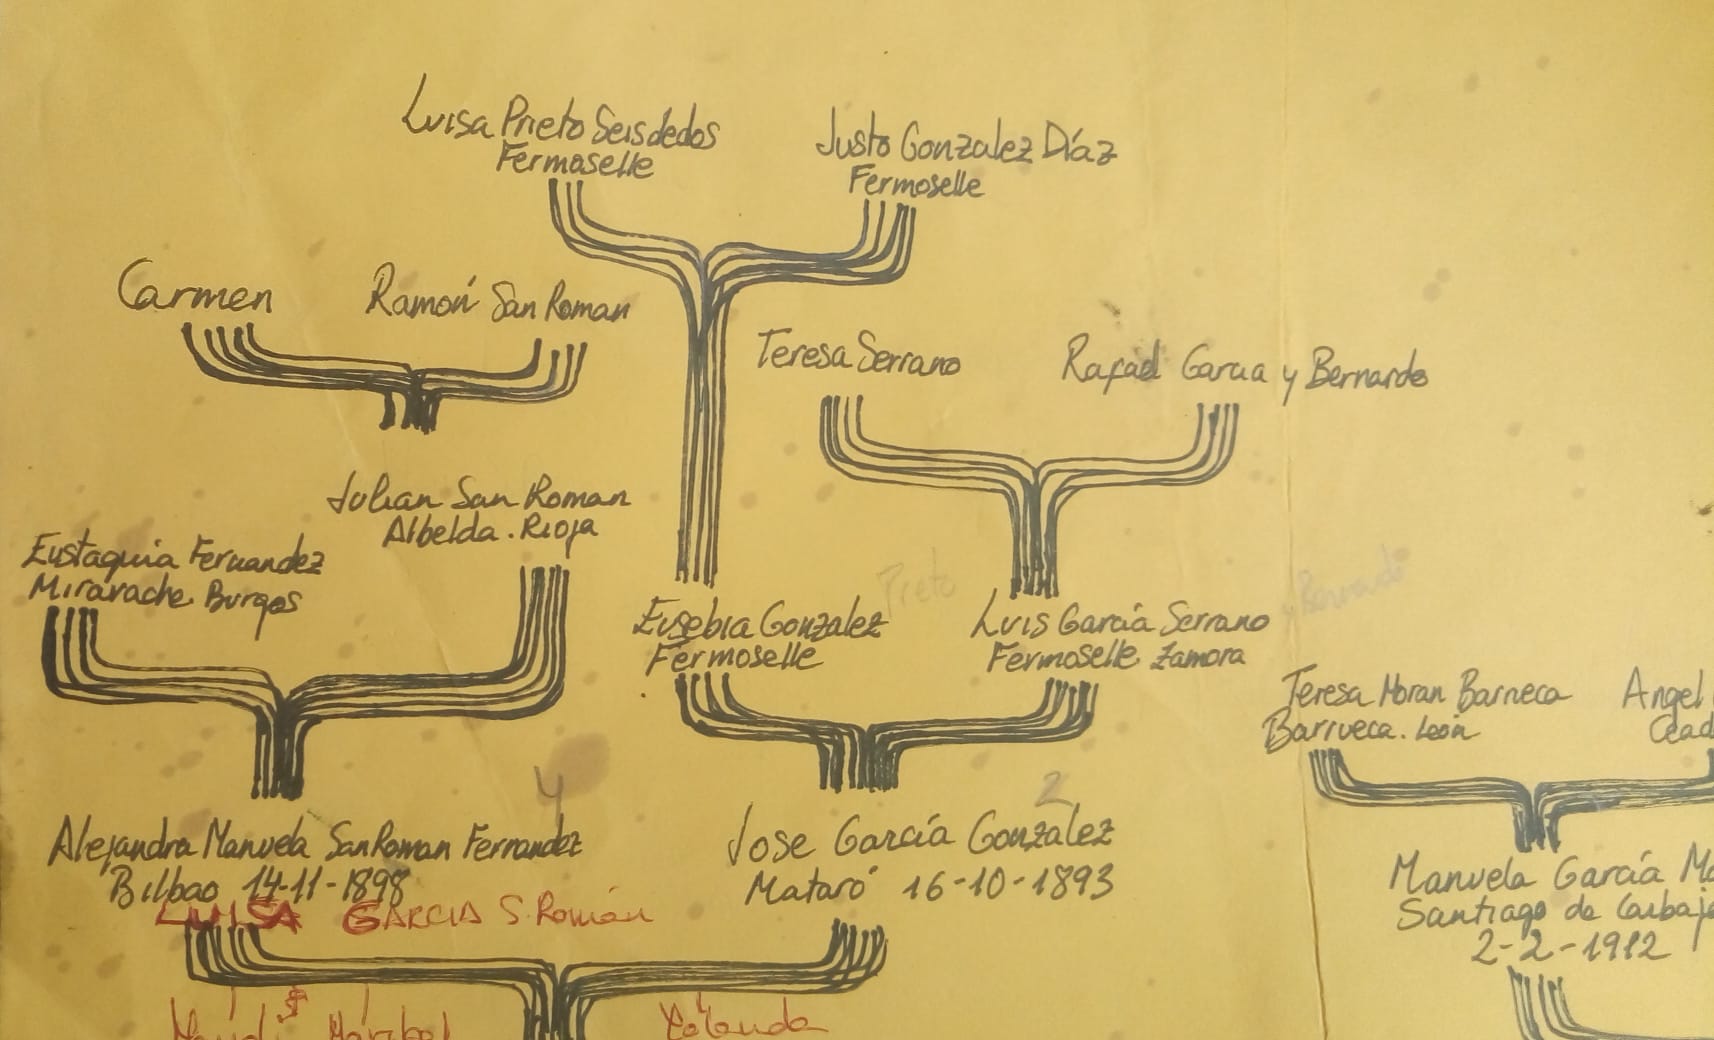 Luisa Prieto Seisdedos
Fermoselle
Justo Gonzalez Díaz
Fermoselle
Carmen
Ramón San Roman
Teresa Serrano
Rafael Garcia y Bernardo
Julian San Roman
Albelda. Rioja
Eustaquia Fernandez
Miravache Burgos
Prieto
y Bernardo
Eusebia Gonzalez
Fermoselle
Luis García Serrano
Fermoselle Zamora
Teresa Moran Barrueca
Barrueca. León
Angel
4
2
Alejandra Manuela San Roman Fernandez
Bilbao 14-11-1898
Jose García Gonzalez
Mataró 16-10-1893
LUISA GARCIA S. Román
Manuela García
Santiago de
2-2-1912
Maribel
Yolanda